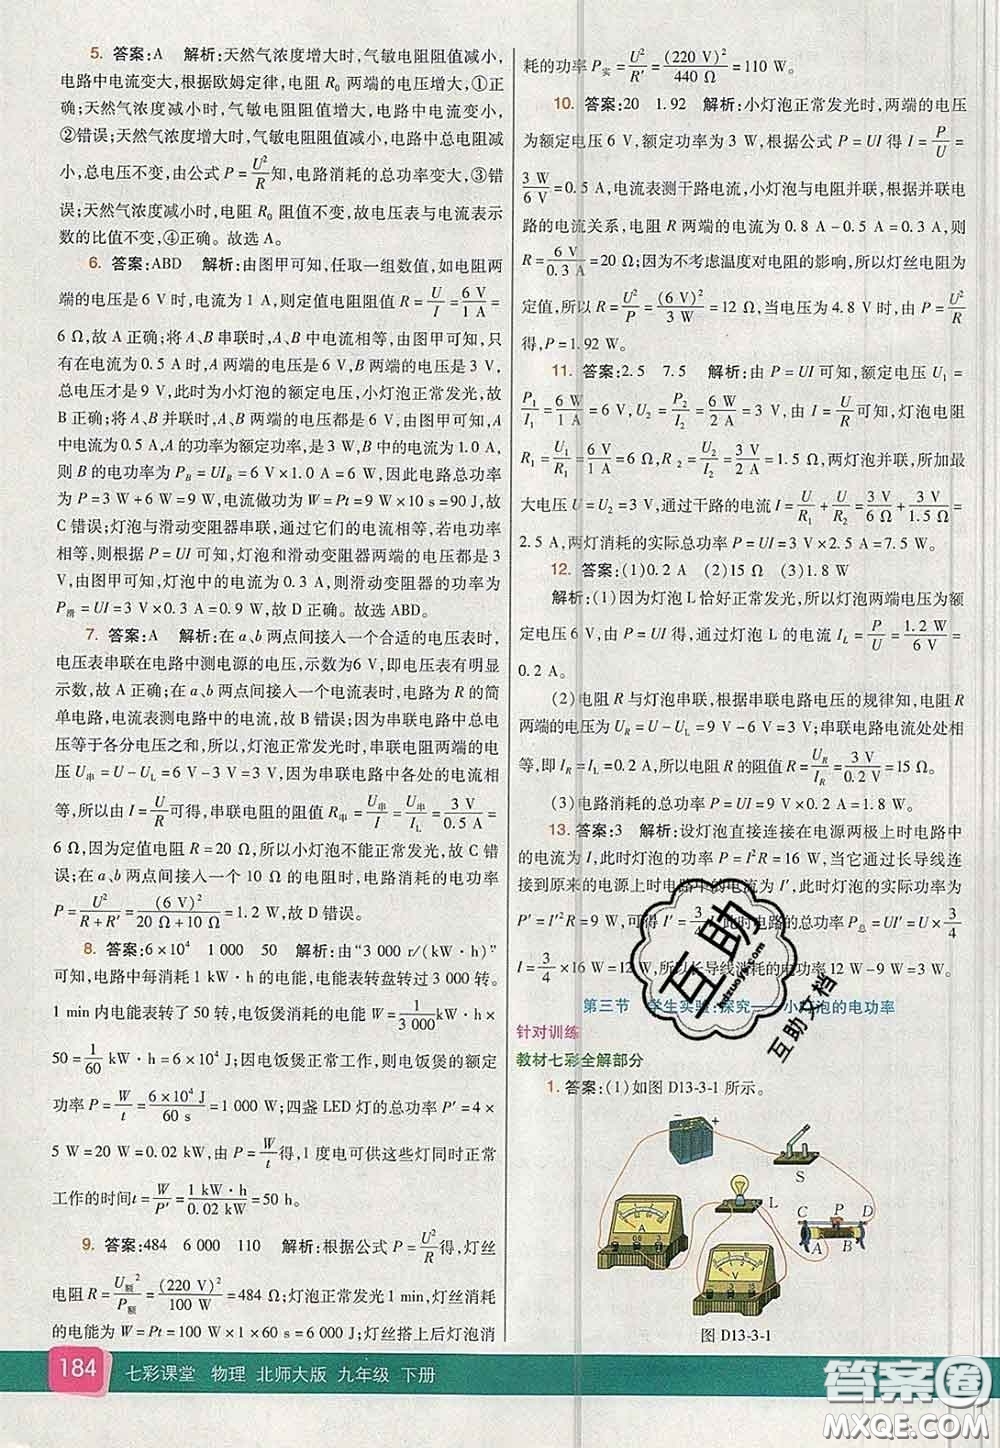 5. 答案:A 解析:天然气浓度增大时,气敏电阻阻值减小,
电路中电流变大,根据欧姆定律,电阻 R₀ 两端的电压增大,①正
确;天然气浓度减小时,气敏电阻阻值增大,电路中电流减小,
②错误;天然气浓度增大时,气敏电阻阻值减小,电路中总电阻减
小,总电压不变,由公式 P=U²/R 知,电路消耗的总功率变大,③错
误;天然气浓度减小时,电阻 R₀ 阻值不变,故电压表与电流表示
数的比值不变,④正确。故选 A。
6. 答案:ABD 解析:由图甲可知,任取一组数值,如电阻两
端的电压是 6 V 时,电流为 1 A,则定值电阻阻值 R=U/I=6 V/1 A=
6 Ω,故 A 正确;将 A、B 串联时,A、B 中电流相等,由图甲可知,只
有在电流为 0.5 A 时,A 两端的电压是 6 V,B 两端的电压是 3 V,
总电压才是 9 V,此时为小灯泡的额定电压,小灯泡正常发光,故
B 正确;将 A、B 并联时,A、B 两端的电压都是 6 V,由图甲可知,A
中电流为 0.5 A,A 的功率为额定功率,是 3 W,B 中电流为 1.0 A,
则 B 的电功率为 P_B=UI_B=6 V×1.0 A=6 W,因此电路总功
率为 P=3 W+6 W=9 W,电流做功为 W=Pt=9 W×10 s=90 J,故
C 错误;灯泡与滑动变阻器串联,通过它们的电流相等,若电功率
相等,则根据 P=UI 可知,灯泡和滑动变阻器两端的电压也相
等,由图甲可知,灯泡中的电流为 0.3 A,则滑动变阻器的功率为
P滑=UI=3 V×0.3 A=0.9 W,故 D 正确。故选 ABD。
7. 答案:A 解析:在 a、b 两点间接入一个合适的电压表时,
电压表串联在电路中测电源的电压,示数为 6 V,即电压表有明显
示数,故 A 正确;在 a、b 两点间接入一个电流表时,电路为 R 的简
单电路,电流表测电路中的电流,故 B 错误;因为串联电路中总电
压等于各分电压之和,所以,灯泡正常发光时,串联电阻两端的电
压 U串=U-U_L=6 V-3 V=3 V,因串联电路中各处的电流相
等,所以由 I=U/R 可得,串联电阻的阻值 R串=U串/I=U串/I_L=3 V/0.5 A=
6 Ω,因为定值电阻为 20 Ω,所以小灯泡不能正常发光,故 C 错误;
在 a、b 两点间接入一个 10 Ω 的电阻时,电路消耗的电功率
P=U²/(R+R′)=(6 V)²/(20 Ω+10 Ω)=1.2 W,故 D 错误。
8. 答案:6×10⁴ 1 000 50 解析:由“3 000 r/(kW·h)”
可知,电路中每消耗 1 kW·h 的电能,电能表转盘转过 3 000 转。
1 min 内电能表转了 50 转,电饭煲消耗的电能 W=1/3 000 kW·h×50=
1/60 kW·h=6×10⁴ J;因电饭煲正常工作,所以,电饭煲的额定
功率 P=W/t=6×10⁴ J/60 s=1 000 W;四盏 LED 灯的总功率 P′=4×
5 W=20 W=0.02 kW,由 P=W/t 得,1 度电可供这些灯同时正常
工作的时间 t=W/P′=1 kW·h/0.02 kW=50 h。
9. 答案:484 6 000 110 解析:根据公式 P=U²/R 得,灯丝
电阻 R=U额²/P额=(220 V)²/100 W=484 Ω;灯泡正常发光 1 min,灯丝消耗
的电能为 W=Pt=100 W×1×60 s=6 000 J;灯丝搭上后灯泡消
耗的功率 P实=U²/R′=(220 V)²/440 Ω=110 W。
10. 答案:20 1.92 解析:小灯泡正常发光时,两端的电压
为额定电压 6 V,额定功率为 3 W,根据公式 P=UI 得 I=P/U=
3 W/6 V=0.5 A,电流表测干路电流,小灯泡与电阻并联,根据并联电
路的电流关系,电阻 R 两端的电流为 0.8 A-0.5 A=0.3 A,电阻
R=6 V/0.3 A=20 Ω;因为不考虑温度对电阻的影响,所以灯丝电阻为
定值,所以 R=U²/P=(6 V)²/3 W=12 Ω,当电压为 4.8 V 时,由 P=U²/R
得,P=1.92 W。
11. 答案:2.5 7.5 解析:由 P=UI 可知,额定电压 U₁=
P₁/I₁=6 W/1 A=6 V,U₂=P₂/I₂=6 W/2 A=3 V,由 I=U/R 可知,灯泡电阻
R₁=U₁/R₁=6 V/1 A=6 Ω,R₂=U₂/I₂=3 V/2 A=1.5 Ω,两灯泡并联,所加最
大电压 U=3 V,通过干路的电流 I=U/R₁+U/R₂=3 V/6 Ω+3 V/1.5 Ω=
2.5 A,两灯消耗的实际总功率 P=UI=3 V×2.5 A=7.5 W。
12. 答案:(1)0.2 A (2)15 Ω (3)1.8 W
解析:(1)因为灯泡 L 恰好正常发光,所以灯泡两端电压为额
定电压 6 V,由 P=UI 得,通过灯泡 L 的电流 I_L=P/U=1.2 W/6 W=
0.2 A。
(2)电阻 R 与灯泡串联,根据串联电路电压的规律知,电阻 R
两端的电压为 U_R=U-U_L=9 V-6 V=3 V;串联电路电流处处相
等,即 I_R=I_L=0.2 A,所以电阻 R 的阻值 R=U_R/I_R=3 V/0.2 V=15 Ω。
(3)电路消耗的总功率 P=UI=9 V×0.2 A=1.8 W。
13. 答案:3 解析:设灯泡直接连接在电源两极上时电路中
的电流为 I,此时灯泡的功率 P=I²R=16 W,当它通过长导线连
接到原来的电源上时电路中的电流为 I′,此时灯泡的实际功率
P′=I′²R=9 W,可得 I′=3/4 I,此时电路的总功率 P总=UI′=U×3/4
I=3/4×16 W=12 W,所以长导线消耗的电功率 12 W-9 W=3 W。
第三节 学生实验:探究——小灯泡的电功率
针对训练
教材七彩全解部分
1. 答案:(1)如图 D13-3-1 所示。
- +
S
L
A
V
C P D
A B
图 D13-3-1
互助
kdzuoye.com
互助文档
184 七彩课堂 物理 北师大版 九年级 下册
答案圈
MXQE.COM